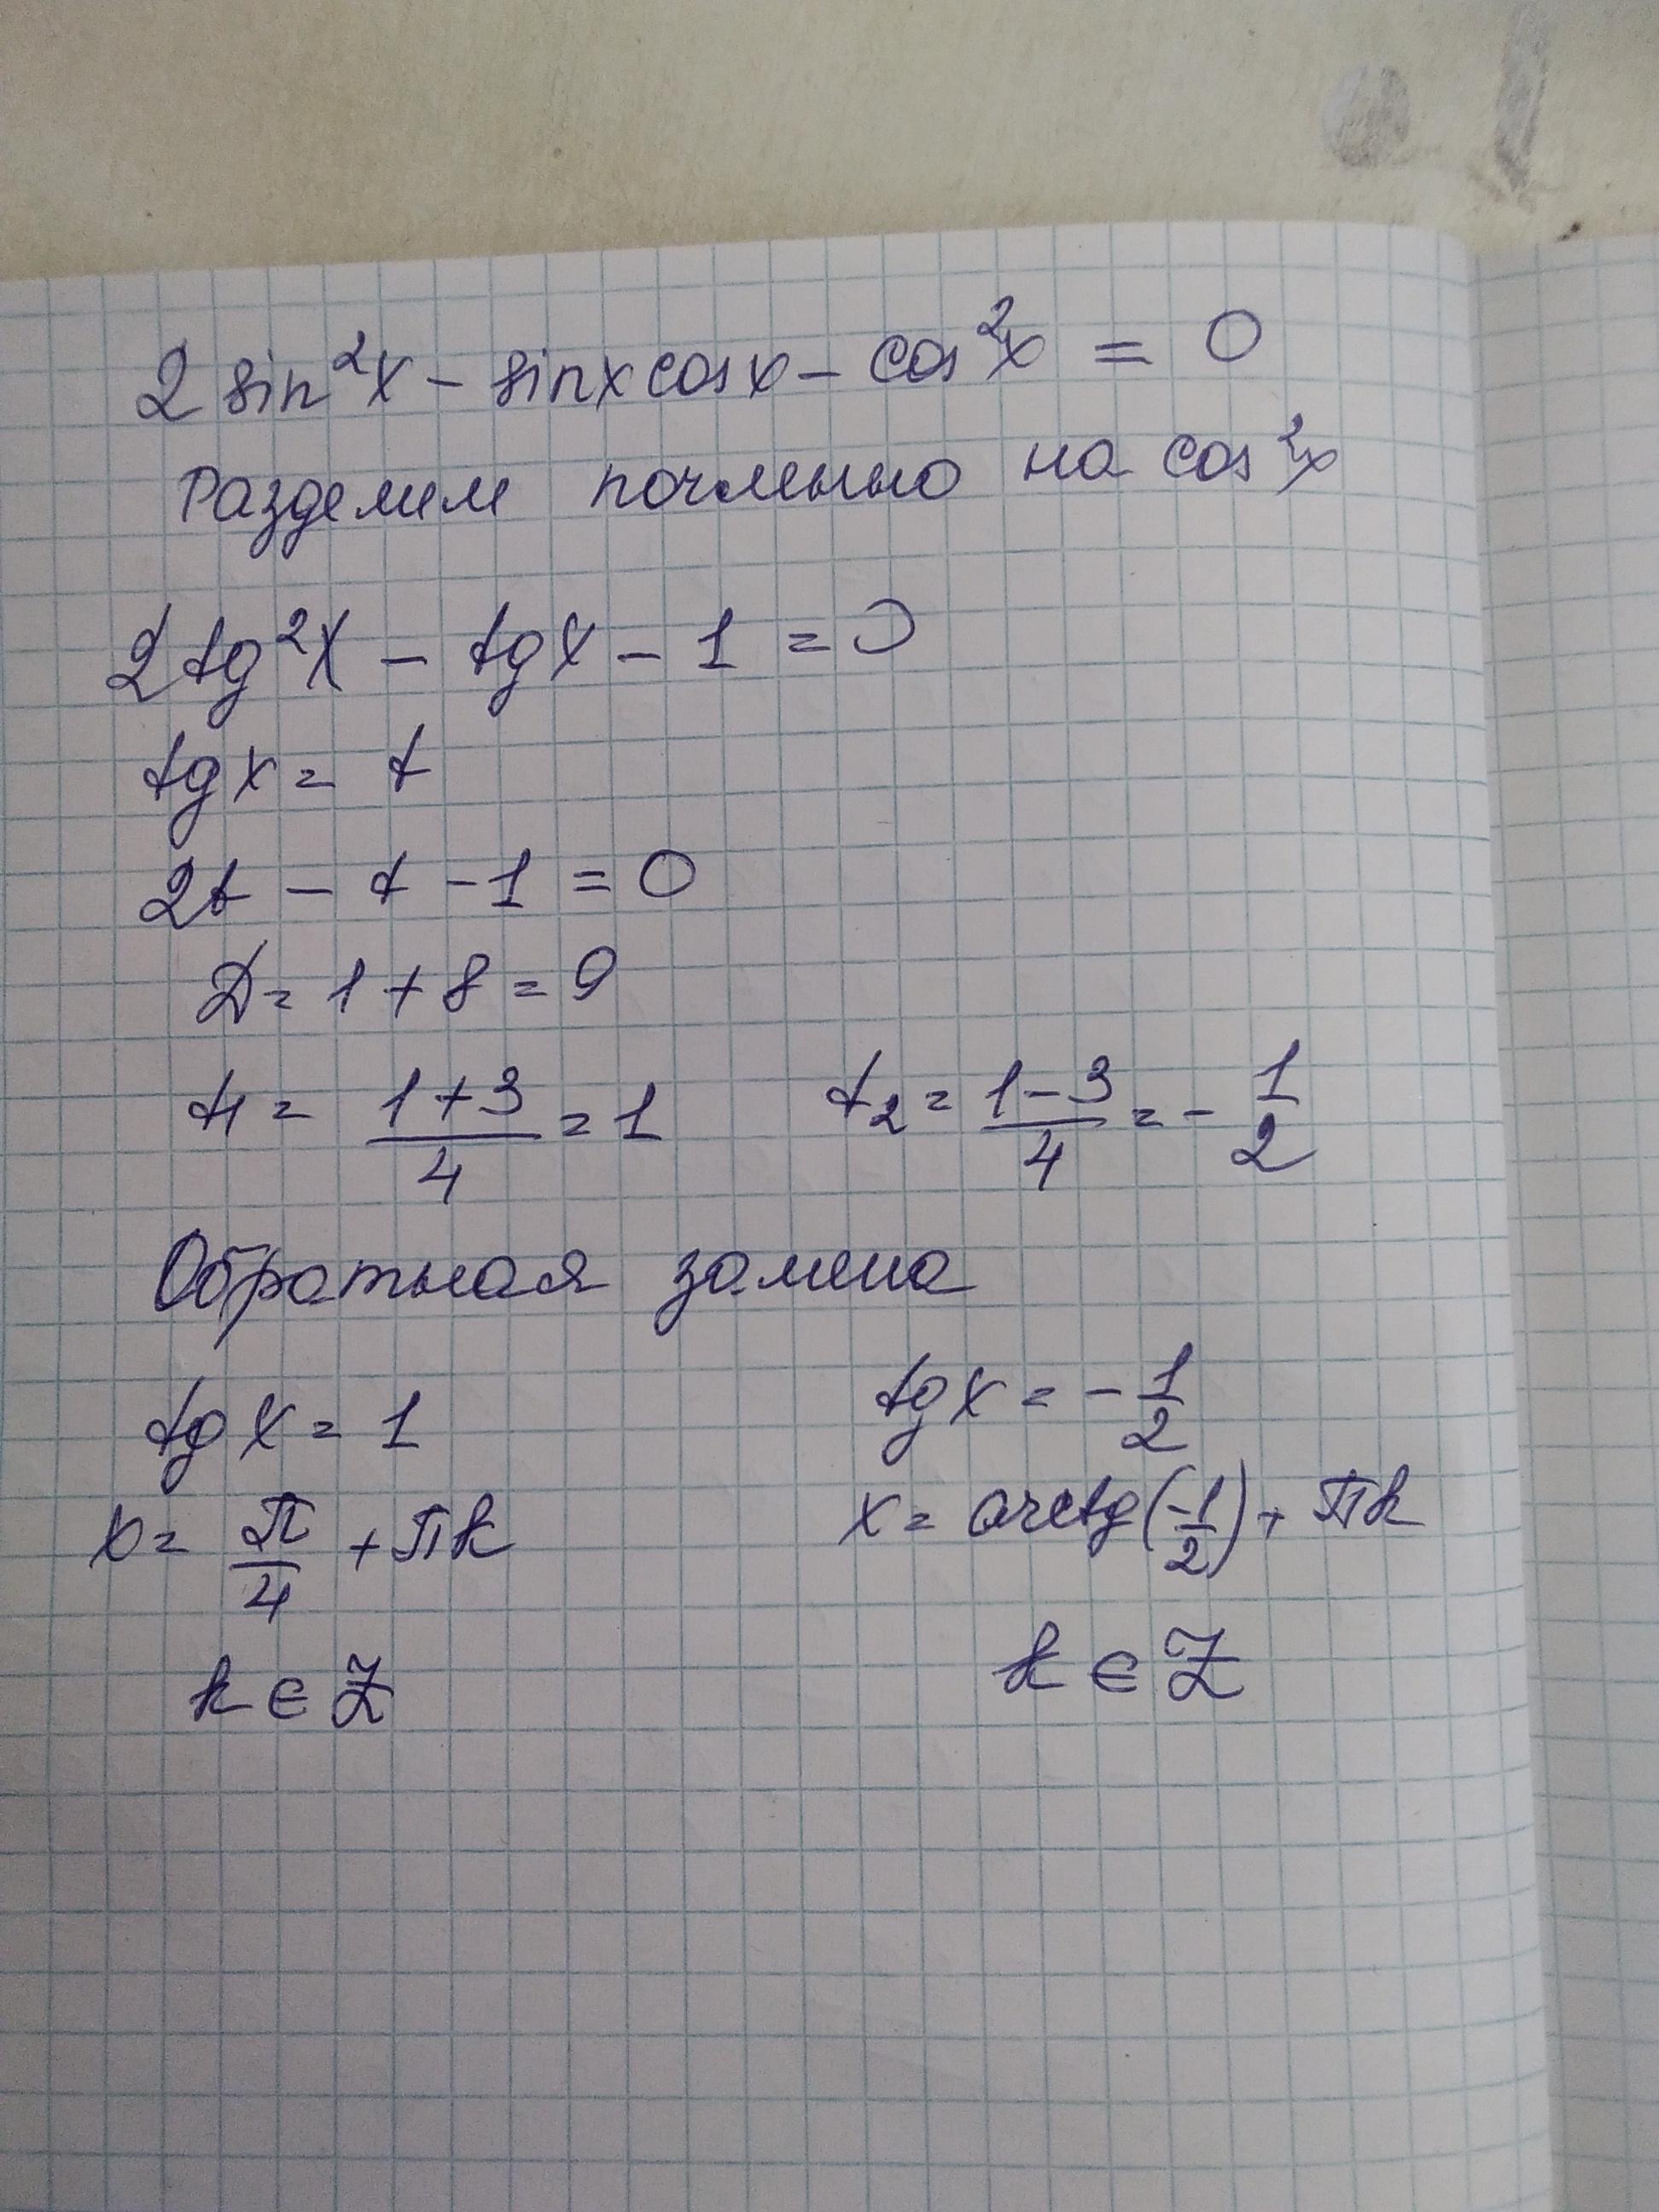 2 sin²x - sinx cosx - cos²x = 0
Разделим почленно на cos²x
2tg²x - tgx - 1 = 0
tgx = t
2t - t - 1 = 0
D = 1 + 8 = 9
t1 = (1+3)/4 = 1    t2 = (1-3)/4 = - 1/2
Обратная замена
tgx = 1    tgx = - 1/2
x = π/4 + πk    x = arctg(-1/2) + πk
k ∈ Z    k ∈ Z